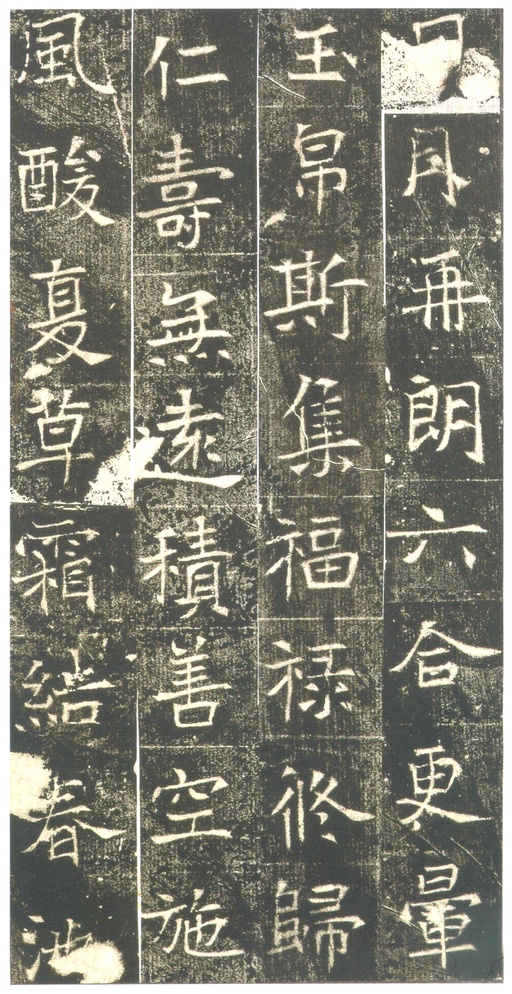 日月再朗六合更暈
玉帛斯集福祿攸歸
仁壽無遠積善空施
風酸夏草霜結春池